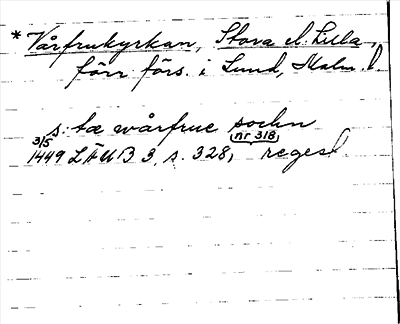 * Vårfrukyrkan, Stora el. Lilla,
förr förs. i Lund, Malm. l
s: tæ wårfrue sochn
3/5 1449 LÄUB 3, s. 328, (nr 318) regest.